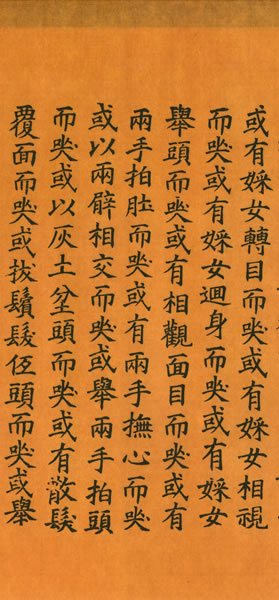 或有婇女轉目而哭或有婇女相視
而哭或有婇女迴身而哭或有婇女
舉頭而哭或有相觀面目而哭或有
兩手拍肚而哭或有兩手撫心而哭
或以兩臂相交而哭或舉兩手拍頭
而哭或以灰土坌頭而哭或有散髮
覆面而哭或拔鬚髮低頭而哭或舉